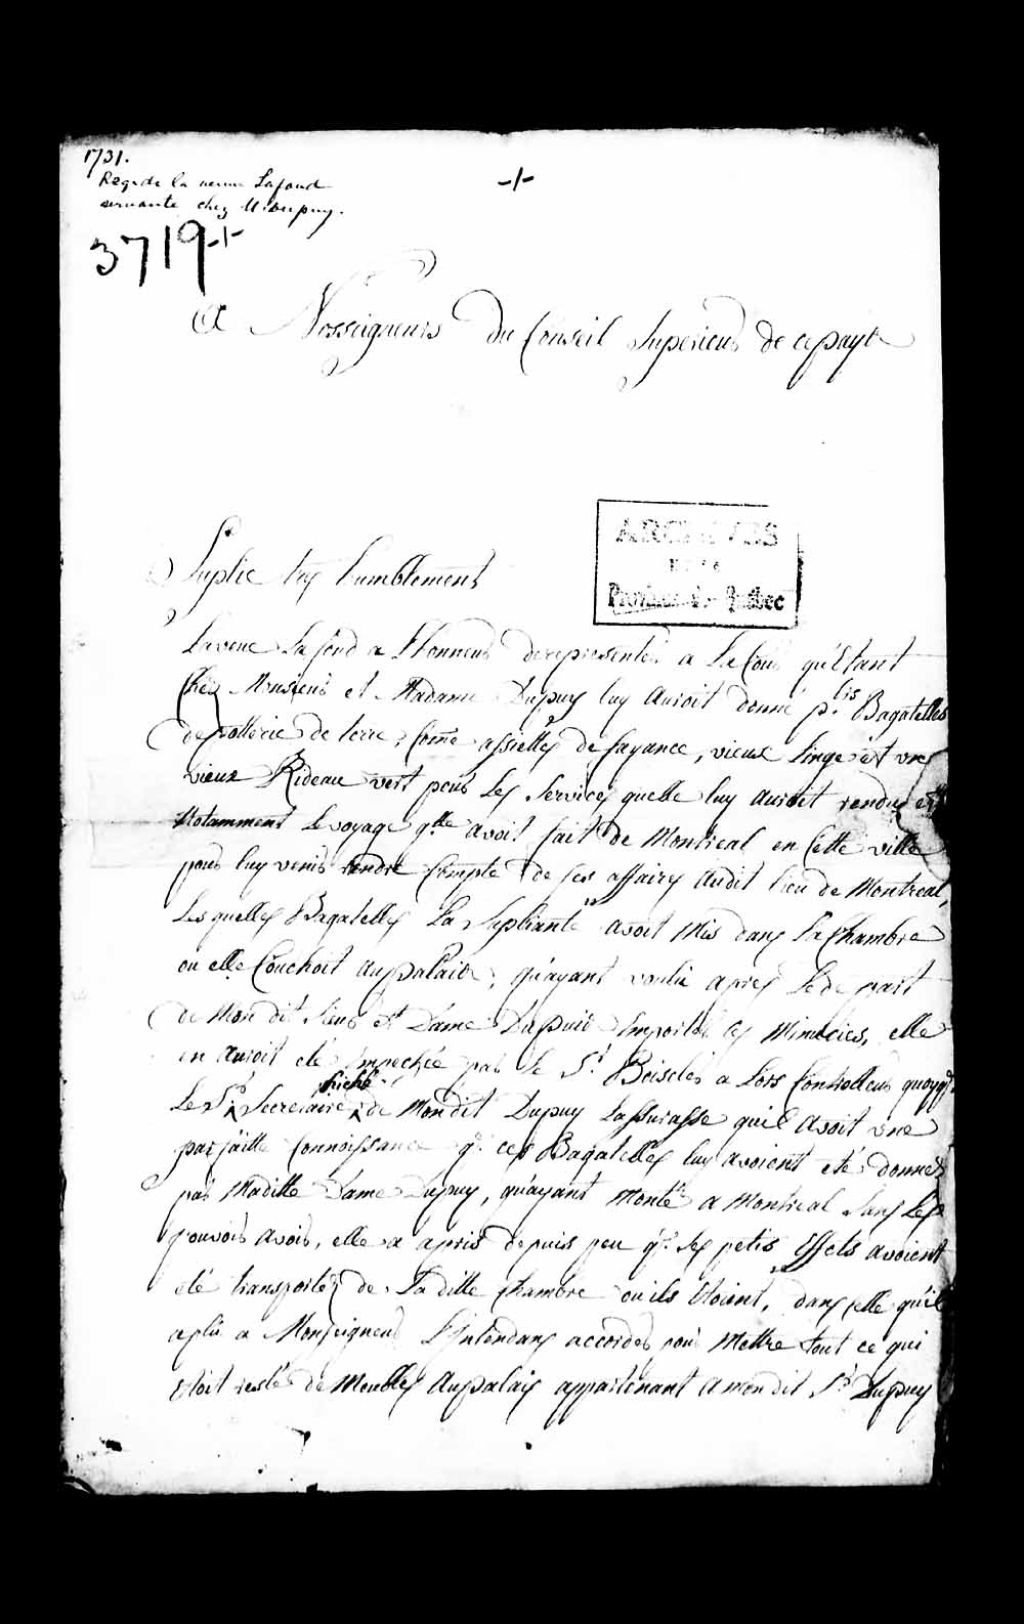 1731.
Req. de la veuve Lafond
servante chez M. Dupuy.
3719
A Nosseigneurs du Conseil Superieur de ce pays
ARCHIVES
Province de Québec
Suplie tres humblement
La veuve Lafond a l'honneur de representer a la Cour qu'Etant
Chez Monsieur et Madame Dupuy luy auroit donné plis Bagatelles
de potterie de terre, Come assiettes de fayance, vieux linge et une
vieux Rideau vert pour les services quelle luy auroit rendu et
Notamment le voyage qlle avoit fait de Montreal en Cette ville
pour luy venir rendre Compte de ses affaires audit lieu de Montreal,
Lesquelles Bagatelles La Supliante avoit Mis dans la Chambre
ou elle Couchoit au palais, qu'ayant voulu apres le depart
de Mon dit Sieur et Dame Dupuis Emporter ces Minucies, elle
en auroit eté Empechée par le Sr. Boiscler a lors Controlleur quoyq.
le Sr. hiché Secretaire de Mondit Dupuy l'assurasse quil avoit une
parfaitte Connoissance q. ces Bagatelles luy avoient eté donner
par Maditte Dame Dupuy, qu'ayant Monté a Montreal sans les
pouvoir avoir, elle a apris depuis peu q. ses petis Effets avoient
eté transportéz de la ditte Chambre ou ils Etoient, dans celle qu'il
a plu a Monseigneur l'Intendant accorder pour Mettre tout ce qui
Etoit resté de Meubles au palais appartenant a mon dit Sr. Dupuy